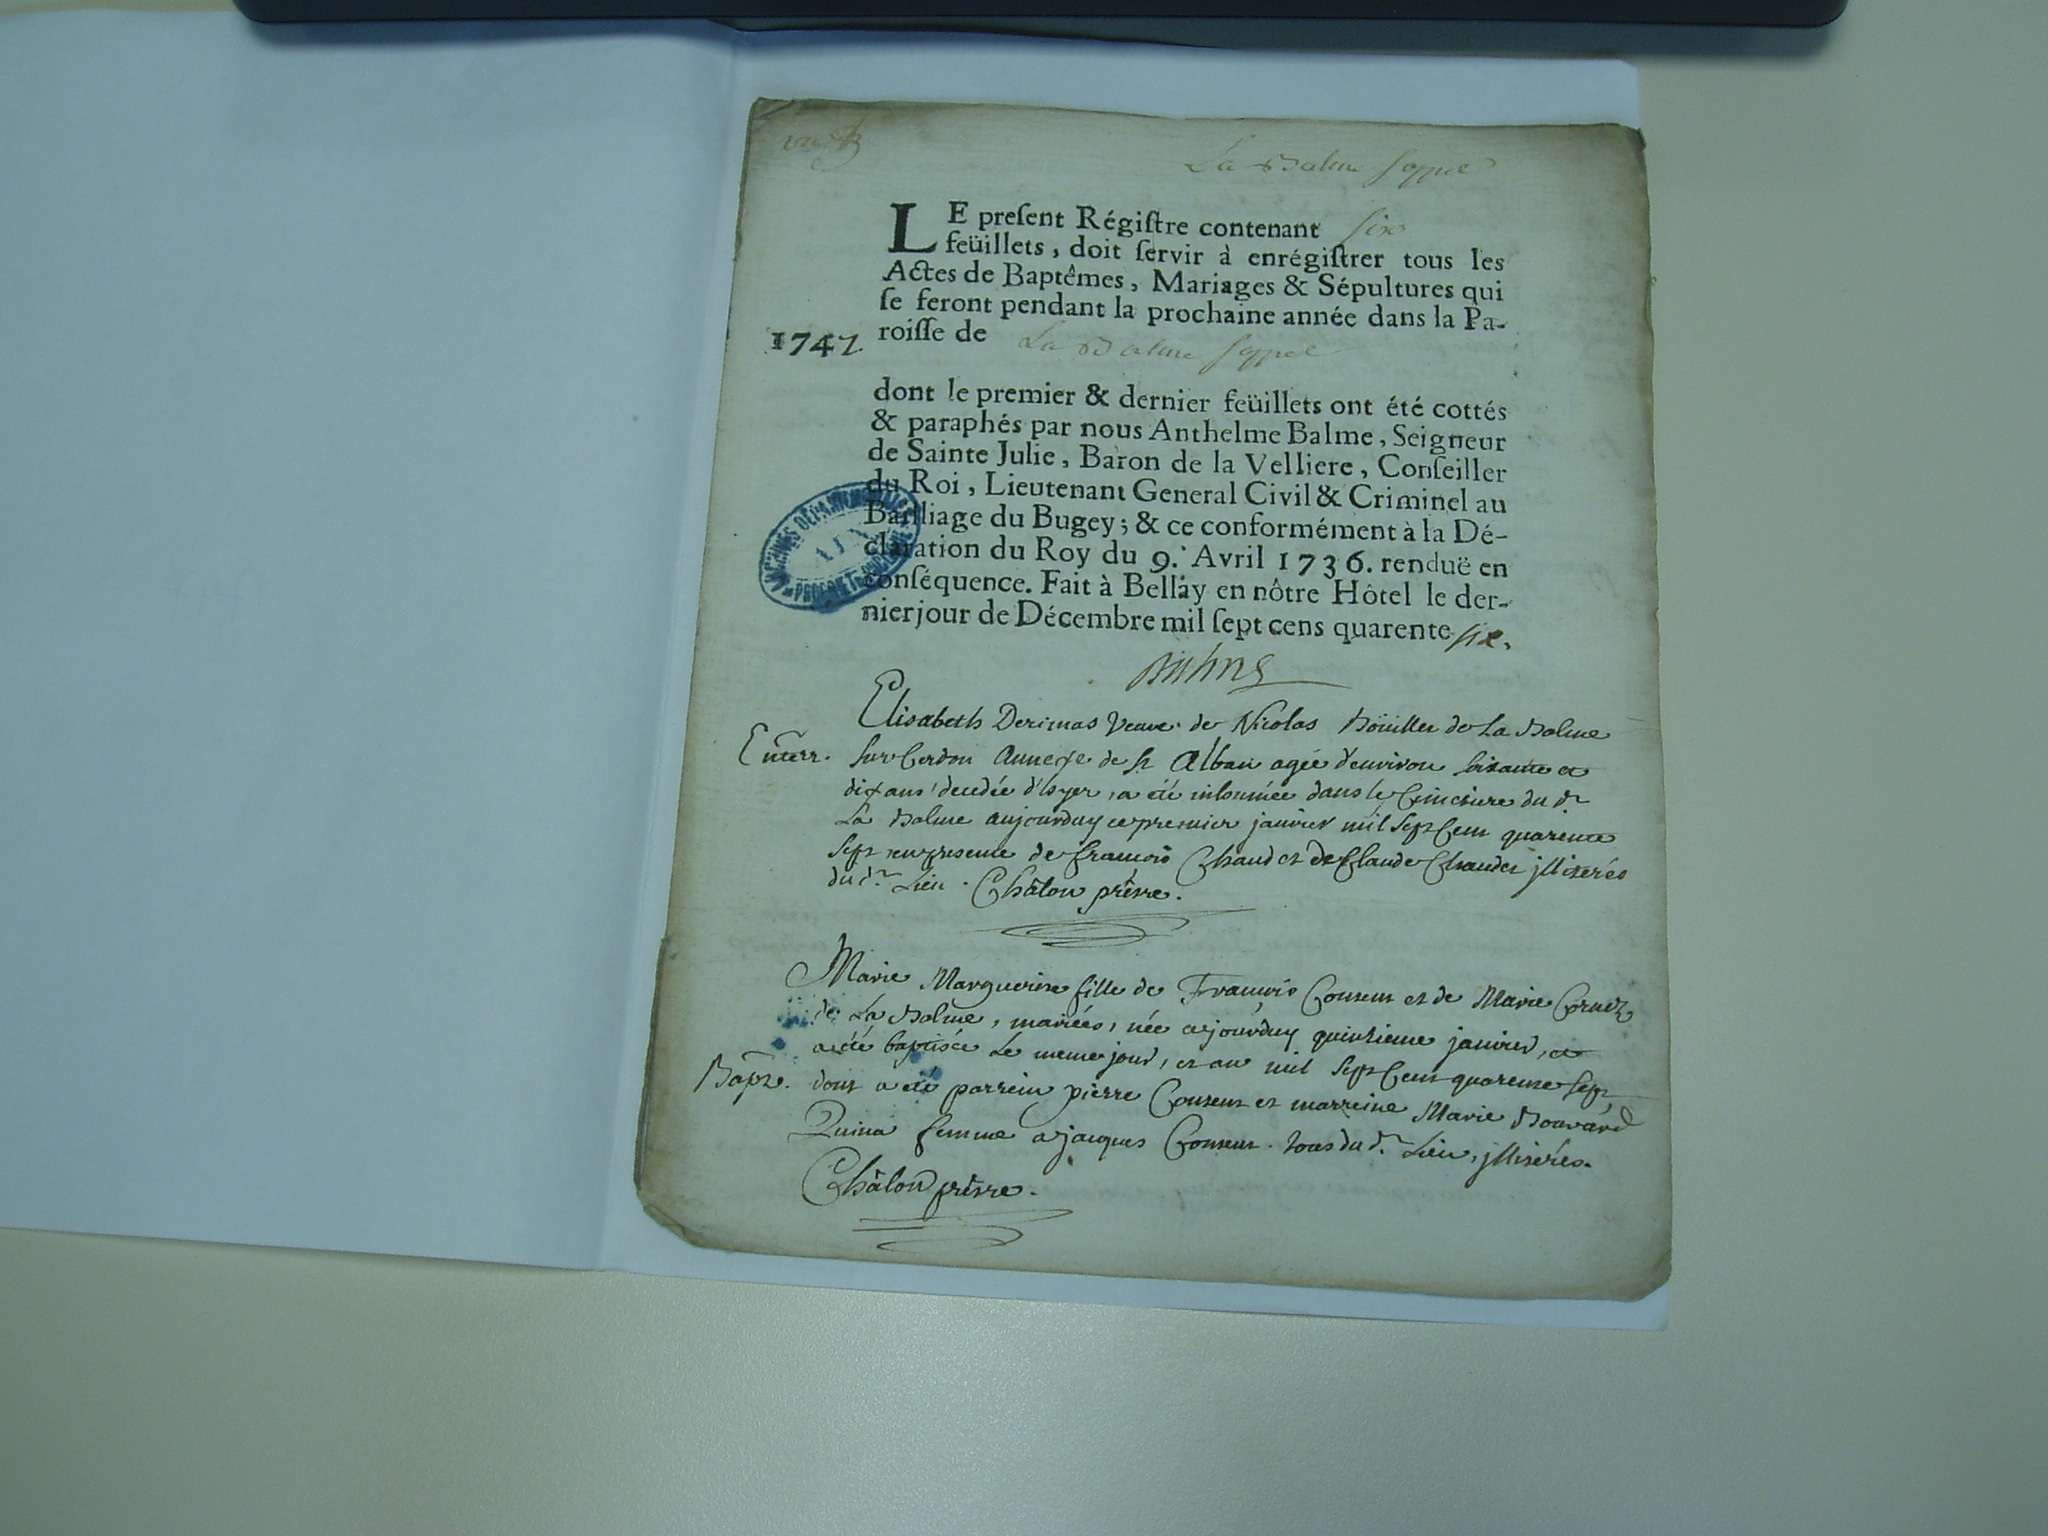 La Balme sappel
LE preſent Régiſtre contenant six
feüillets, doit ſervir à enrégiſtrer tous les
Actes de Baptêmes, Mariages & Sépultures qui
ſe feront pendant la prochaine année dans la Pa-
1747. roiſſe de La Balme sappel
dont le premier & dernier feüillets ont été cottés
& paraphés par nous Anthelme Balme, Seigneur
de Sainte Julie, Baron de la Velliere, Conſeiller
du Roi, Lieutenant General Civil & Criminel au
Bailliage du Bugey; & ce conformément à la Dé-
claration du Roy du 9. Avril 1736. renduë en
conſéquence. Fait à Bellay en nôtre Hôtel le der-
nier jour de Décembre mil ſept cens quarente six.
ARCHIVES DEPARTEMENTALES
AIN
Balme
Elisabeth Derimas veuve de Nicolas Boüiller de La Balme
Enterr. sur Cerdon annexe de st Alban agée d'environ soixante et
dix ans decedée d'hyer, a été inhumée dans le Cimetiere du dt
La Balme aujourduy ce premier janvier mil sept Cent quarente
sept en presence de francois Chaudet de Claude Chaudet jlliterés
du dt Lieu. Châlon prêtre.
Marie Marguerite fille de François Couteur et de Marie Cornet
de La Balme, mariées, née ajourduy quinzieme janvier, et
a été baptisée Le meme jour, et an mil sept Cent quarente sept,
Bapt. dont a été parrein pierre Couteur et marreine Marie Bouvard
Quina femme a jacques Couteur. tous du dt Lieu, jlliterés.
Châlon prêtre.